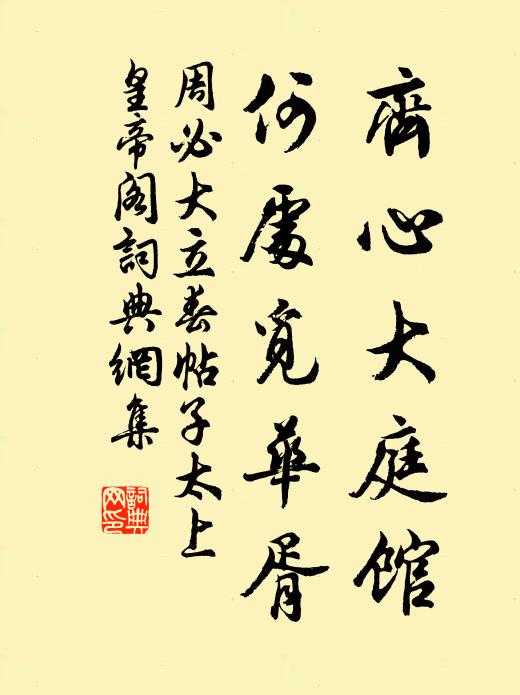 齋心大庭館
何處覓華胥
周必大立春帖子太上
皇帝閣詞典網集
詞典
网印